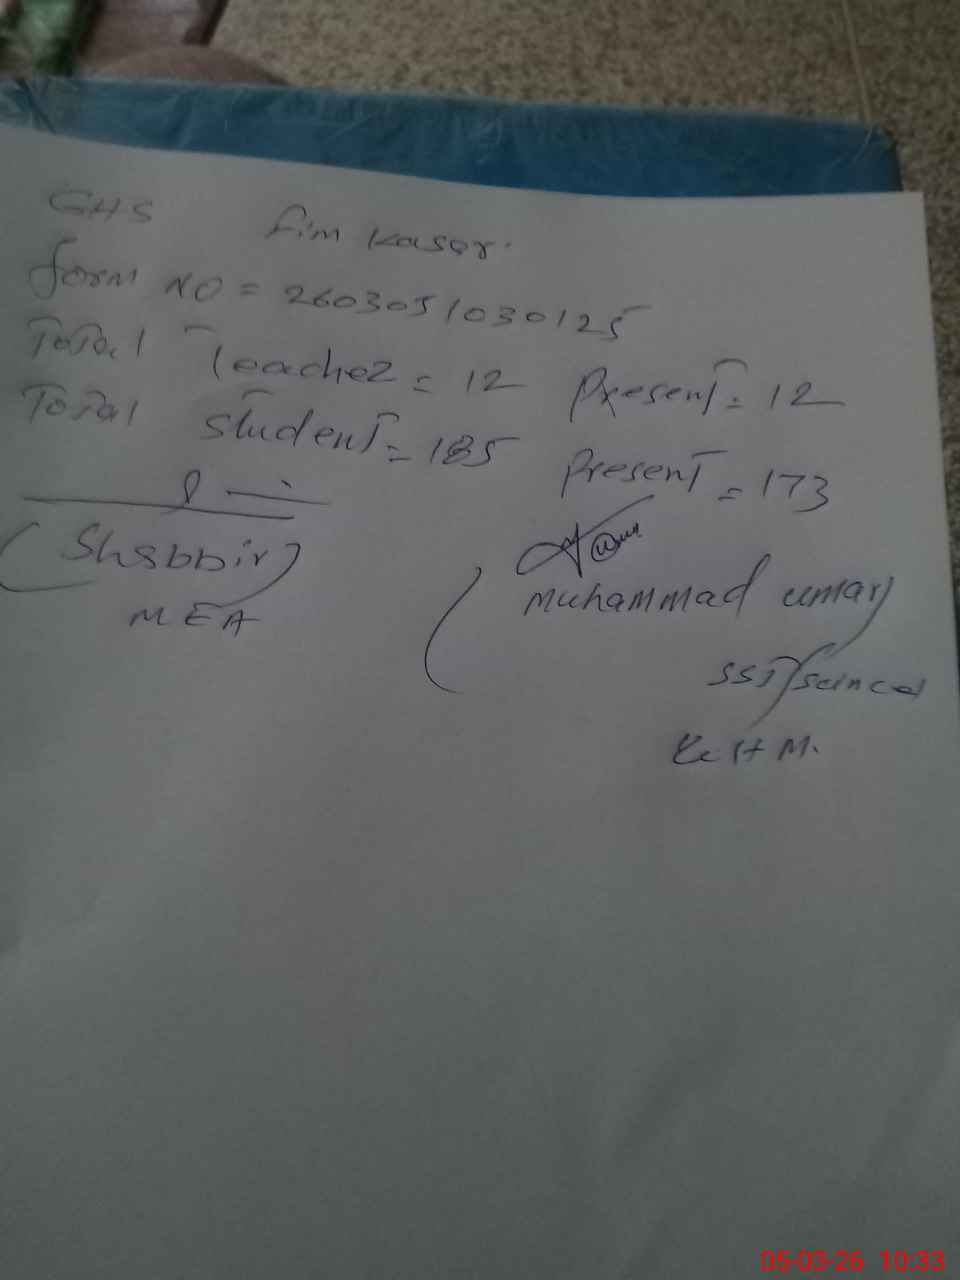 GHS Fim Kasor.
Form NO = 2603051030125
Total Teacher = 12 Present = 12
Total Student = 185 Present = 173
(Shabbir)
MEA
(Muhammad Umar)
SST/Scince
& H M.
05-03-26 10:33